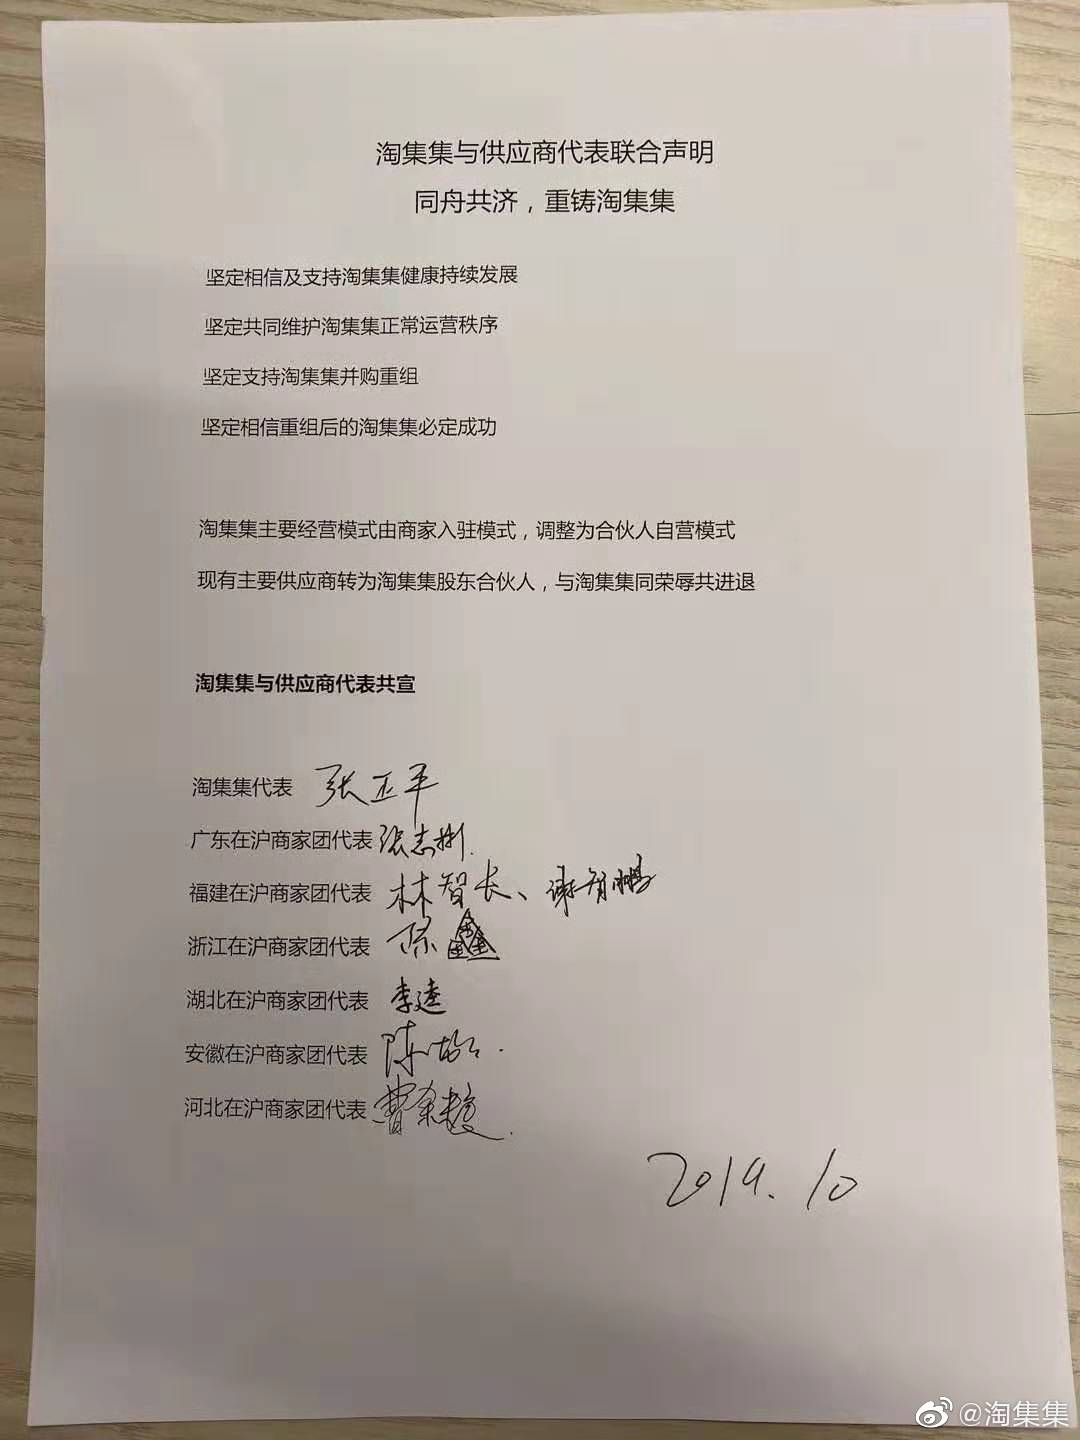 淘集集与供应商代表联合声明
同舟共济，重铸淘集集
坚定相信及支持淘集集健康持续发展
坚定共同维护淘集集正常运营秩序
坚定支持淘集集并购重组
坚定相信重组后的淘集集必定成功
淘集集主要经营模式由商家入驻模式，调整为合伙人自营模式
现有主要供应商转为淘集集股东合伙人，与淘集集同荣辱共进退
淘集集与供应商代表共宣
淘集集代表 张正平
广东在沪商家团代表 张志彬
福建在沪商家团代表 林智长、谢智鹏
浙江在沪商家团代表 陈鑫
湖北在沪商家团代表 李逵
安徽在沪商家团代表 陈
河北在沪商家团代表 曹
2019.10
@淘集集